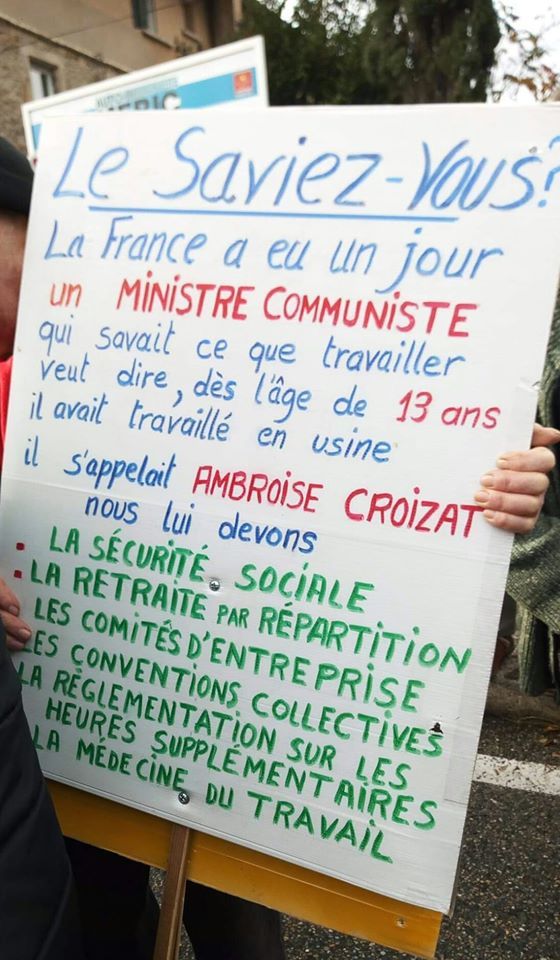 Le Saviez-Vous?
La France a eu un jour
un MINISTRE COMMUNISTE
qui savait ce que travailler
veut dire, dès l'âge de 13 ans
il avait travaillé en usine
il s'appelait AMBROISE CROIZAT
nous lui devons
: LA SÉCURITÉ SOCIALE
LA RETRAITE PAR RÉPARTITION
LES COMITÉS D'ENTREPRISE
LES CONVENTIONS COLLECTIVES
LA RÈGLEMENTATION SUR LES
HEURES SUPPLÉMENTAIRES
LA MÉDECINE DU TRAVAIL